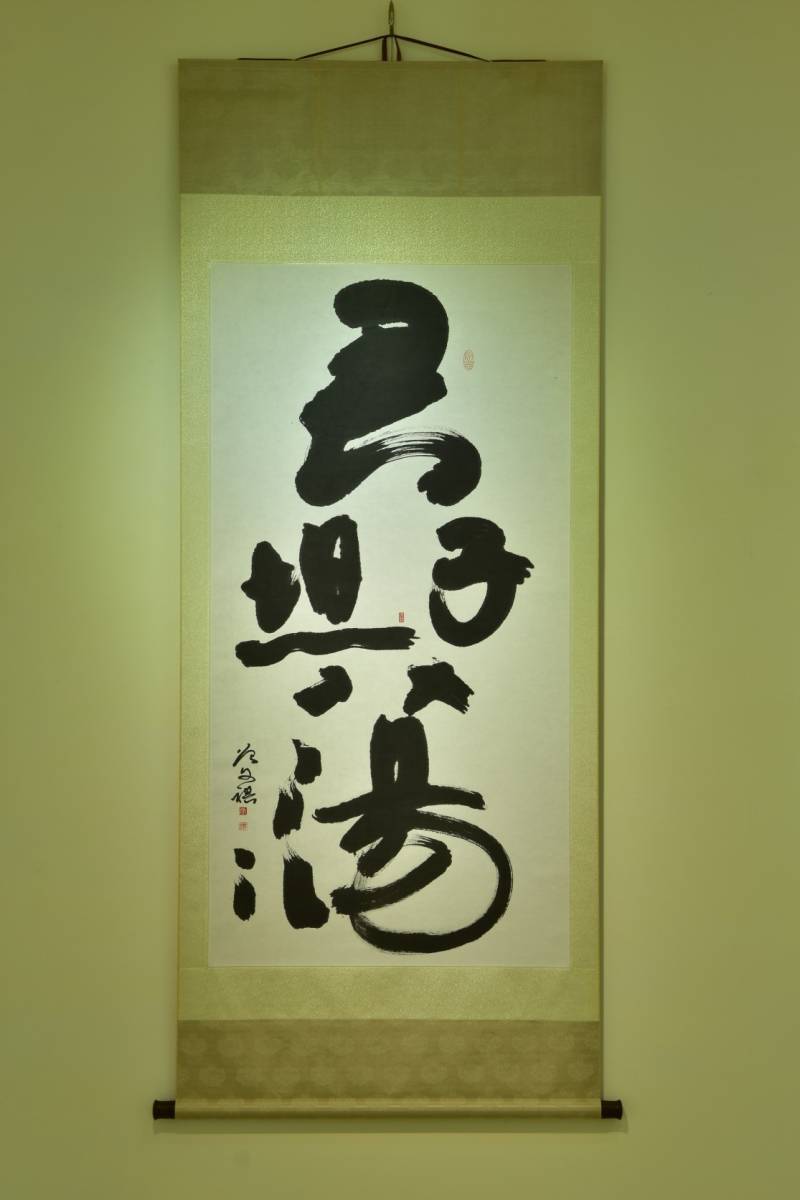 君子坦蕩〻